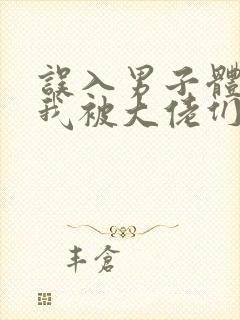 誤入男子體
我被大佬们
丰倉